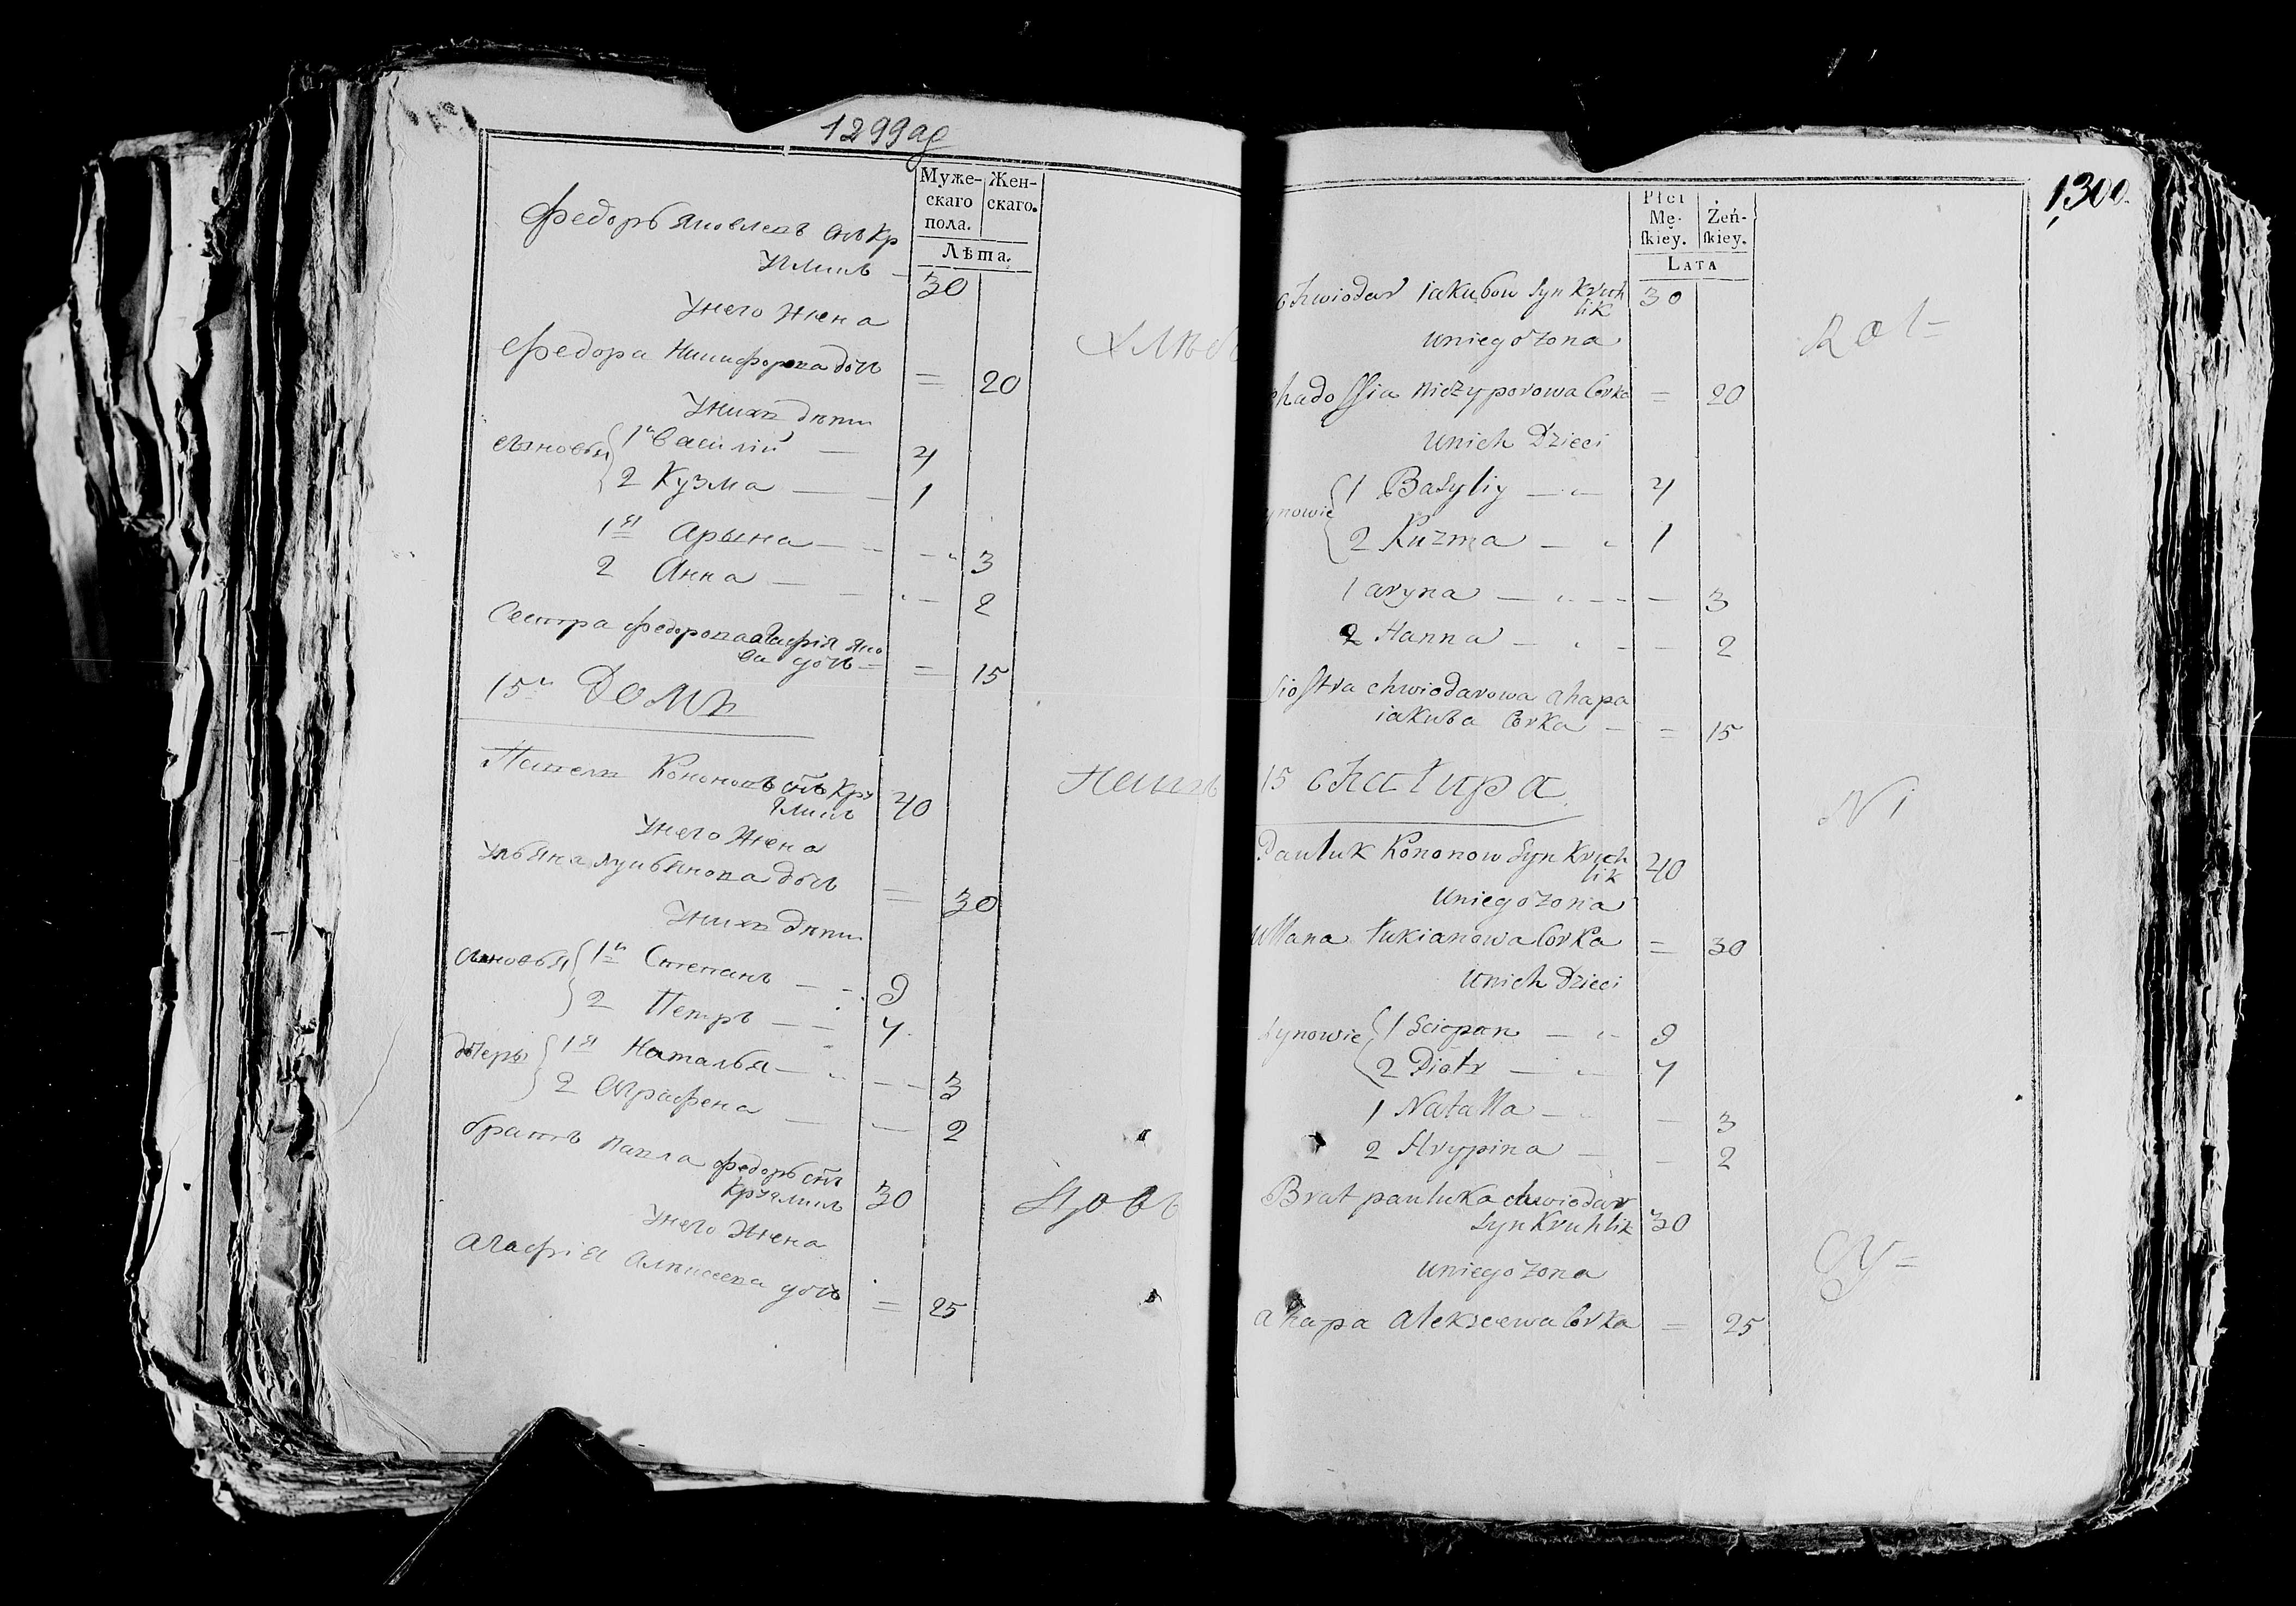 1299 аg
Муже-
скаго
пола.
Жен-
скаго.
Лѣта.
Федоръ Яковлевъ снъ Кр
угликъ
30
У него жена
Федора Никифорова дочь = 20
У нихъ дѣти
сыновья
1й Василій — 4
2 Кузма — — 1
1я Арына — — 3
2 Анна — — 2
Сестра Федорова Агафія Яко
ва дочь = = 15
15й Домъ
Павелъ Кононовъ снъ Кру
гликъ 40
У него жена
Ульяна Лукьянова дочь = 30
У нихъ дѣти
сыновья
1й Степанъ — — 9
2 Петръ — — 4
дочеры
1я Наталья — — 3
2 Аграфена — — 2
братъ Павла Федоръ снъ
Кругликъ 30
У него жена
Агафія Алексеева дочь = 25
Хлѣб
1300
Płci
Mę-
ſkiey.
Żeń-
ſkiey.
LATA
chwiodar iakubow Syn Kruh
lik 30
Uniego zona
chadoſſia Niczyporowa Corka = 20
Unich Dzieci
ynowie
1 Basyliy — 4
2 Kuzma — 1
1 aryna — — 3
2 Hanna — — 2
Sioſtra chwiodarowa ahapa
iakuba Corka — = 15
15 chałupa
Pauluk Kononow Syn Kruh
lik 40
Uniego zona
Ullana Łukianowa Corka = 30
Unich Dzieci
Synowie
1 Sciepan — 9
2 Piotr — 4
1 Natalla — — 3
2 Hrypina — — 2
Brat pauluka chwiodar
Syn Kruhlik 30
Uniego zona
ahapa alekseewa Corka = 25
Rol=
Ni